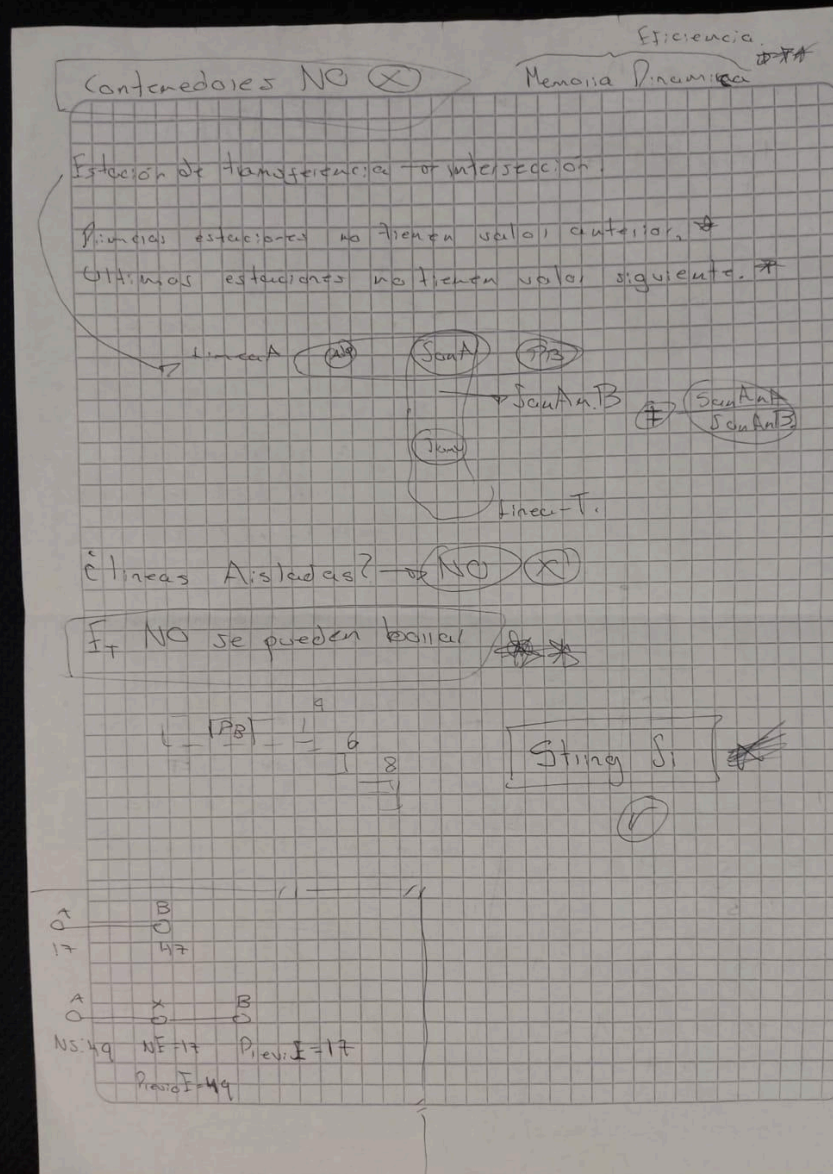 Eficiencia
Contenedores NO X
Memoria Dinamica
Estación de transferencia → intersección.
Primeras estaciones no tienen valor anterior. *
Ultimas estaciones no tienen valor siguiente. *
LineaA
SanA
PB
SanAn.B
≠
SanAnA
SanAnB
Linea-T.
¿lineas Aisladas? → NO X
ET NO se pueden borrar
PB
6
8
Sting Si
A B
17 47
A X B
NS:49 NE=17 Previ.E=17
PrevioE=49